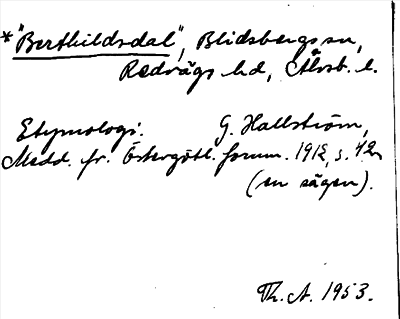 *"Berthildsdal", Blidsbergs sn,
Redvägs hd, Älvsb. l.
Etymologi. G. Hallström,
Medd. fr. Östergötl. fornm. 1912, s. 42
(en sägen).
Th. A. 1953.